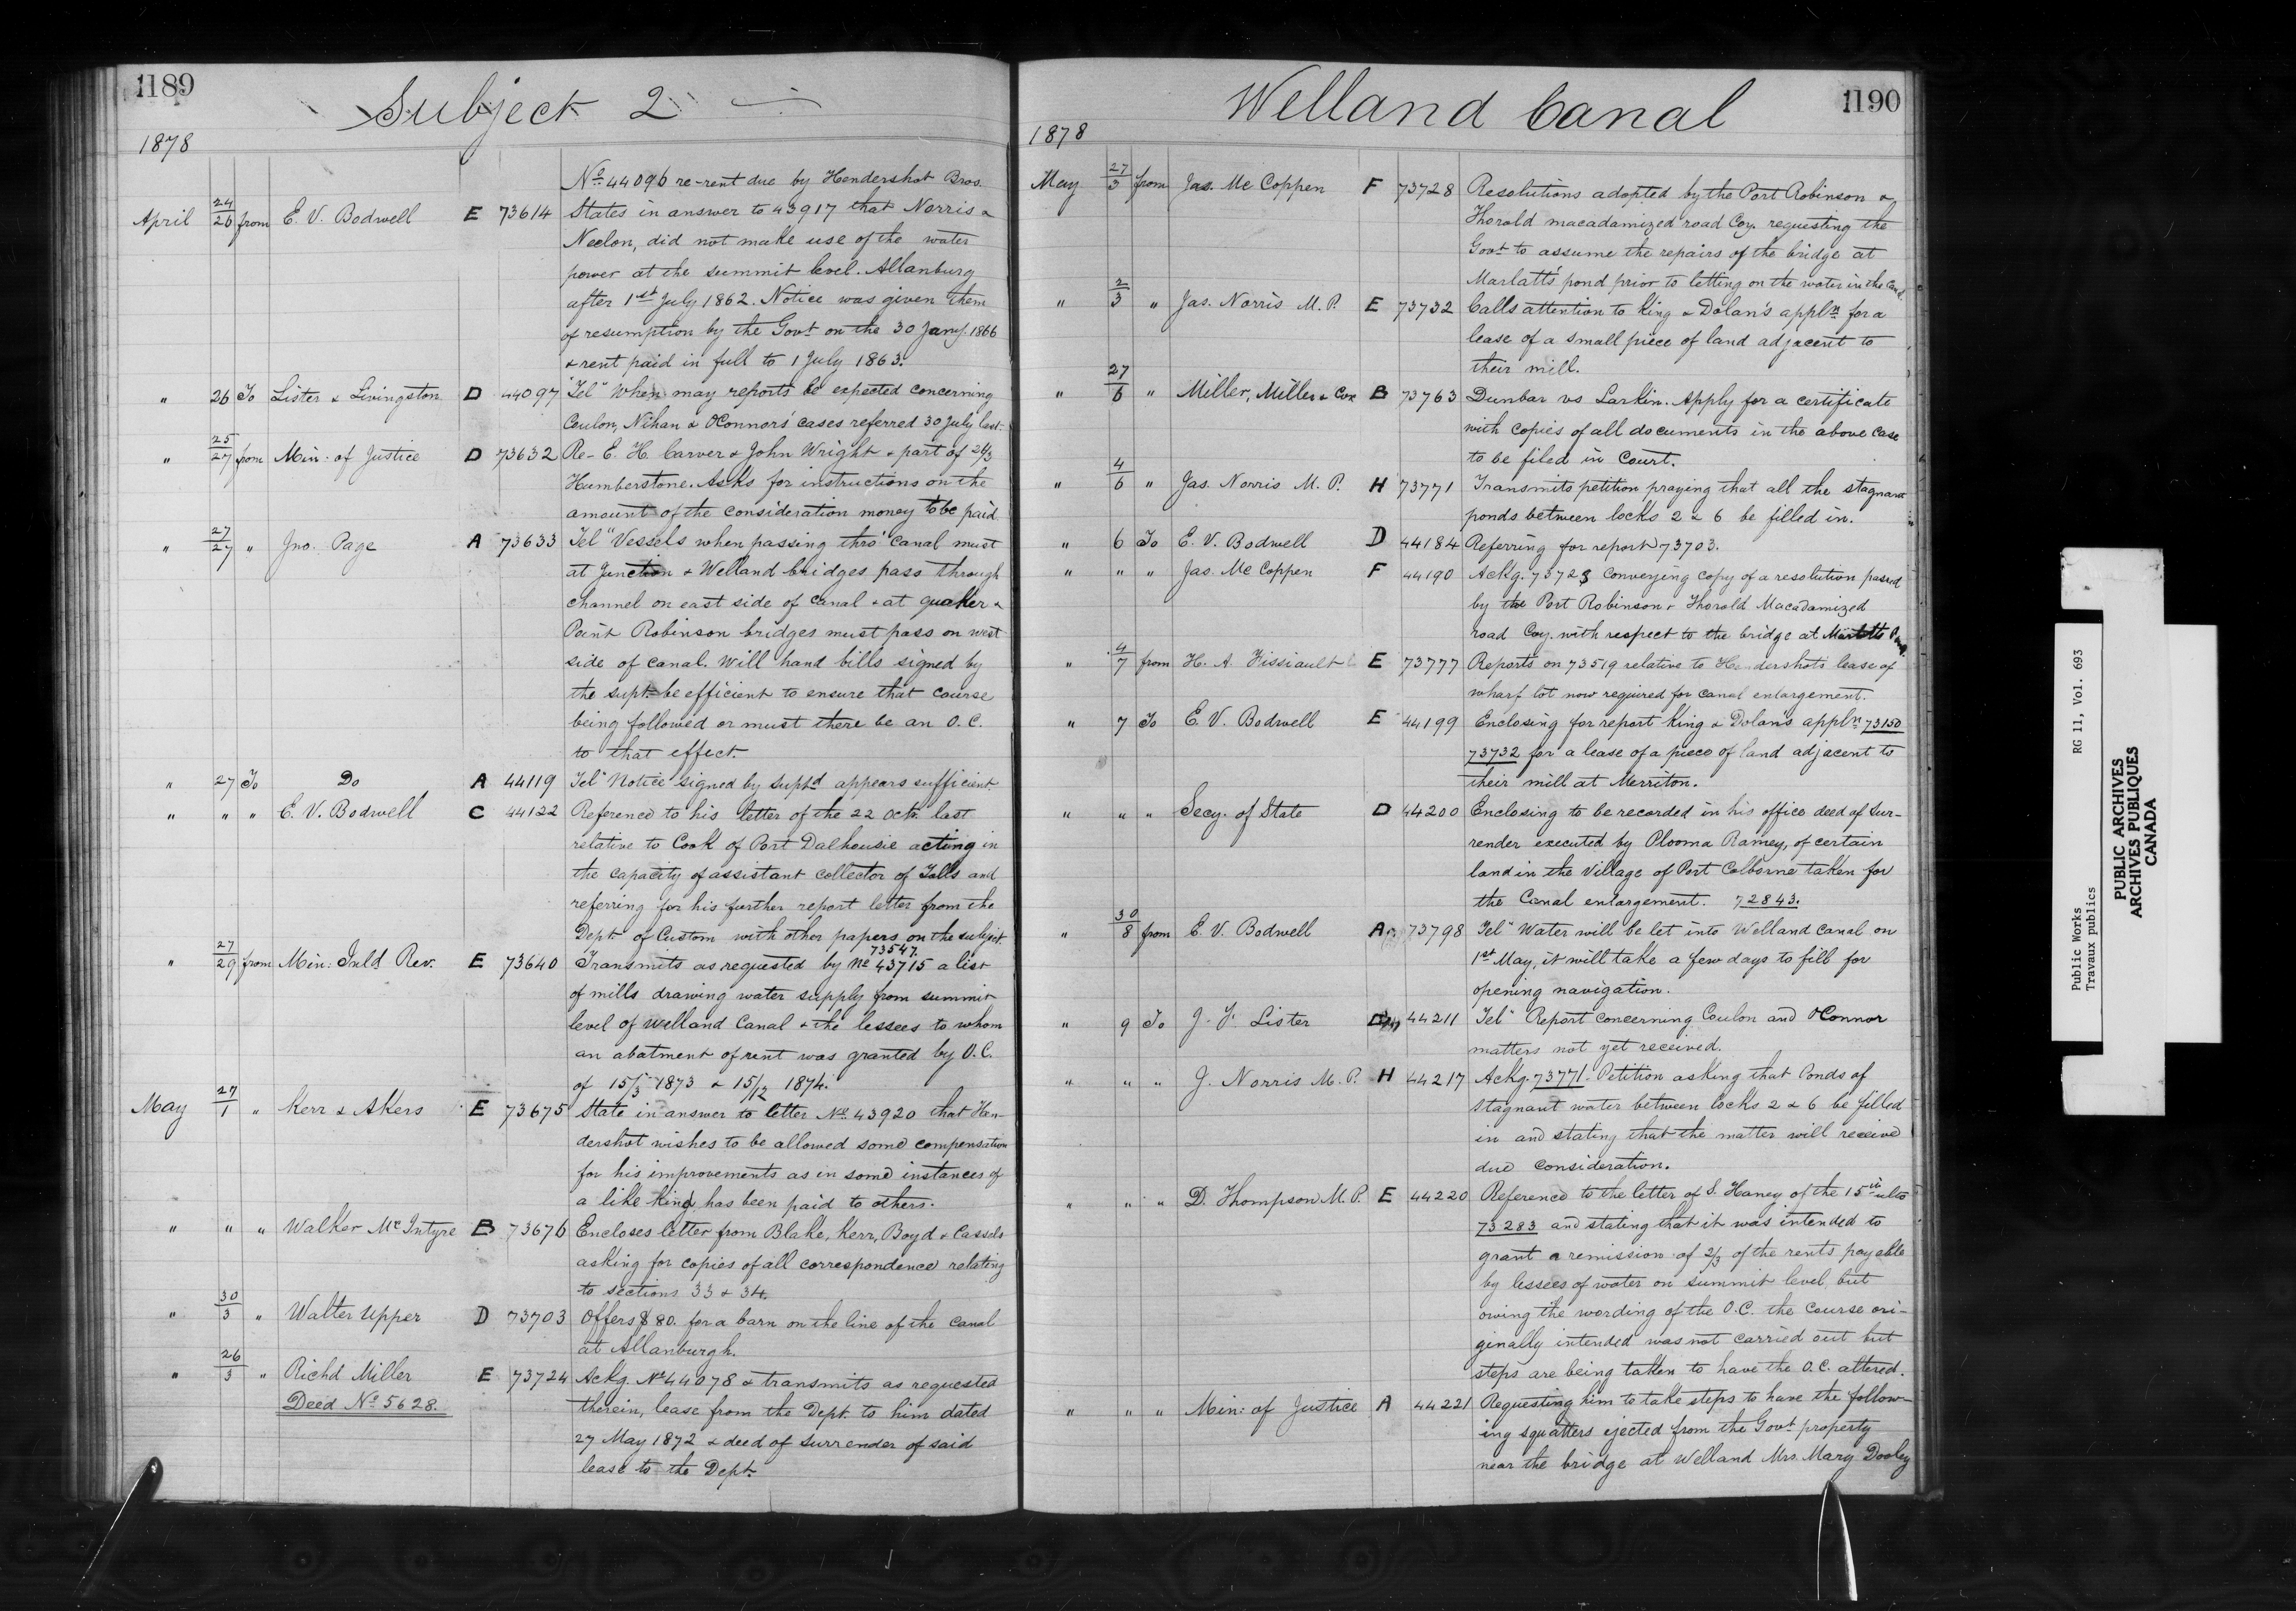 1189
Subject 2
1878
No 44096 re-rent due by Hendershot Bros.
April 24/26 from E. V. Bodwell E 73614 States in answer to 43917 that Norris &
Neelon, did not make use of the water
power at the summit level. Allanburg
after 1st July 1862. Notice was given them
of resumption by the Govt on the 30 Jany. 1866
& rent paid in full to 1 July 1863.
" 26 To Lister & Livingston D 44097 "Tel" When may reports be expected concerning
Coulon, Nihan & OConnors' cases referred 30 July last.
" 25/27 from Min: of Justice D 73632 Re- E. H. Carver & John Wright & part of 26/3
Humberstone. Asks for instructions on the
amount of the consideration money to be paid
" 27/27 " Jno. Page A 73633 Tel" Vessels when passing thro' canal must
at Junction & Welland bridges pass through
channel on east side of canal & at Quaker &
Point Robinson bridges must pass on west
side of canal. Will hand bills signed by
the supt. be efficient to ensure that course
being followed or must there be an O. C.
to that effect.
" 27 To Do A 44119 Tel" Notice signed by Suptd appears sufficient.
" " " E. V. Bodwell C 44122 Reference to his letter of the 22 Octr. last
relative to Cook of Port Dalhousie acting in
the capacity of assistant collector of Tolls and
referring for his further report letter from the
Dept. of Custom with other papers on the subject
73547.
" 27/29 from Min: Inld Rev. E 73640 Transmits as requested by No 43715 a list
of mills drawing water supply from summit
level of Welland Canal & the lessees to whom
an abatment of rent was granted by O. C.
of 15/3 1873 & 15/12 1874.
May 27/1 " Kerr & Akers E 73675 State in answer to letter No. 43920 that Hen-
dershot wishes to be allowed some compensation
for his improvements as in some instances of
a like kind has been paid to others.
" " " Walker McIntyre B 73676 Encloses letter from Blake, Kerr, Boyd & Cassels
asking for copies of all correspondence relating
to sections 33 & 34.
" 30/3 " Walter Upper D 73703 Offers $80. for a barn on the line of the canal
at Allanburgh.
" 26/3 " Richd Miller E 73724 Ackg. No 44078 & transmits as requested
Deed No 5628. therein, lease from the Dept. to him dated
27 May 1872 & deed of surrender of said
lease to the Dept.
Welland Canal
1190
1878
May 27/3 from Jas. McCoppen F 73728 Resolutions adopted by the Port Robinson &
Thorold macadamized road Coy. requesting the
Govt to assume the repairs of the bridge at
Marlatt's pond prior to letting on the water in the Canal.
" 2/3 " Jas. Norris M. P. E 73732 Calls attention to King & Dolan's appln for a
lease of a small piece of land adjacent to
their mill.
" 27/6 " Miller, Miller & Cox B 73763 Dunbar vs Larkin. Apply for a certificate
with copies of all documents in the above case
to be filed in Court.
" 4/6 " Jas. Norris M. P. H 73771 Transmits petition praying that all the stagnant
ponds between locks 2 & 6 be filled in.
" 6 To E. V. Bodwell D 44184 Referring for report 73703.
" " " Jas. McCoppen F 44190 Ackg. 73728 Conveying copy of a resolution passed
by the Port Robinson & Thorold Macadamized
road Coy. with respect to the bridge at Marlatts
" 4/7 from H. A. Fissiault E 73777 Reports on 73519 relative to Hendershots lease of
wharf lot now required for canal enlargement.
" 7 To E. V. Bodwell E 44199 Enclosing for report King & Dolans appln 73150
73732 for a lease of a piece of land adjacent to
their mill at Merriton.
" " " Secy. of State D 44200 Enclosing to be recorded in his office deed of sur-
render executed by Plooma Ramey, of certain
land in the Village of Port Colborne taken for
the Canal enlargement. 72843.
" 30/8 from E. V. Bodwell A 73798 Tel" Water will be let into Welland Canal on
1st May, it will take a few days to fill for
opening navigation.
" 9 To J. Lister D 44211 Tel" Report concerning Coulon and OConnor
matters not yet received.
" " " J. Norris M. P. H 44217 Ackg. 73771. Petition asking that Ponds of
stagnant water between locks 2 & 6 be filled
in and stating that the matter will receive
due consideration.
" " " D. Thompson M. P. E 44220 Reference to the letter of S. Haney of the 15th ulto
73283 and stating that it was intended to
grant a remission of 2/3 of the rents payable
by lessees of water on summit level but
owing the wording of the O. C. the course ori-
ginally intended was not carried out but
steps are being taken to have the O. C. altered.
" " " Min: of Justice A 44221 Requesting him to take steps to have the follow-
ing squatters ejected from the Govt property
near the bridge at Welland Mrs. Mary Dooley
Public Works RG 11, Vol. 693
Travaux publics
PUBLIC ARCHIVES
ARCHIVES PUBLIQUES
CANADA